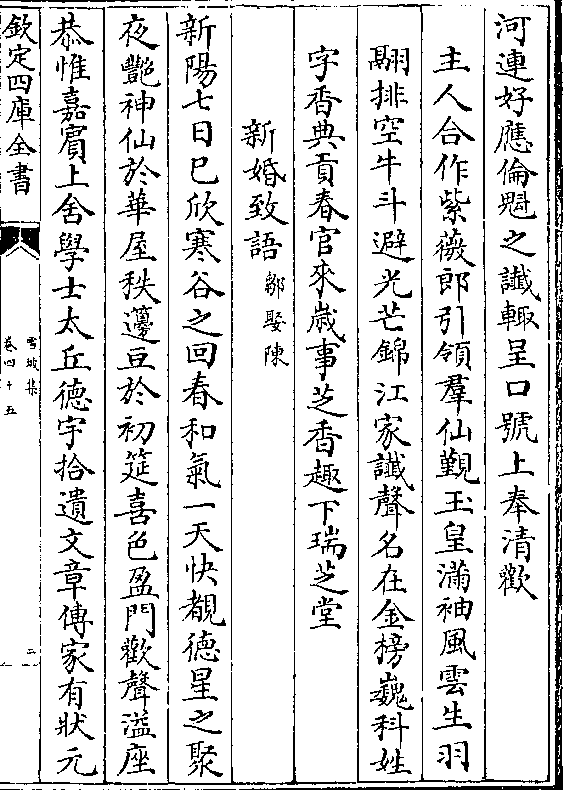 河連好應倫魁之讖輙呈口號上奉清歡
主人合作紫薇郎引領羣仙覲玉皇滿袖風雲生羽
翮排空牛斗避光芒錦江家讖聲名在金榜巍科姓
字香典貢春官來歲事芝香趣下瑞芝堂
新婚致語鄒娶陳
新陽七日已欣寒谷之回春和氣一天快覩德星之聚
夜艷神仙於華屋秩籩豆於初筵喜色盈門歡聲溢座
恭惟嘉賓上舍學士太丘德宇拾遺文章傳家有狀元
欽定四庫全書
雪坡集
卷四十五
二